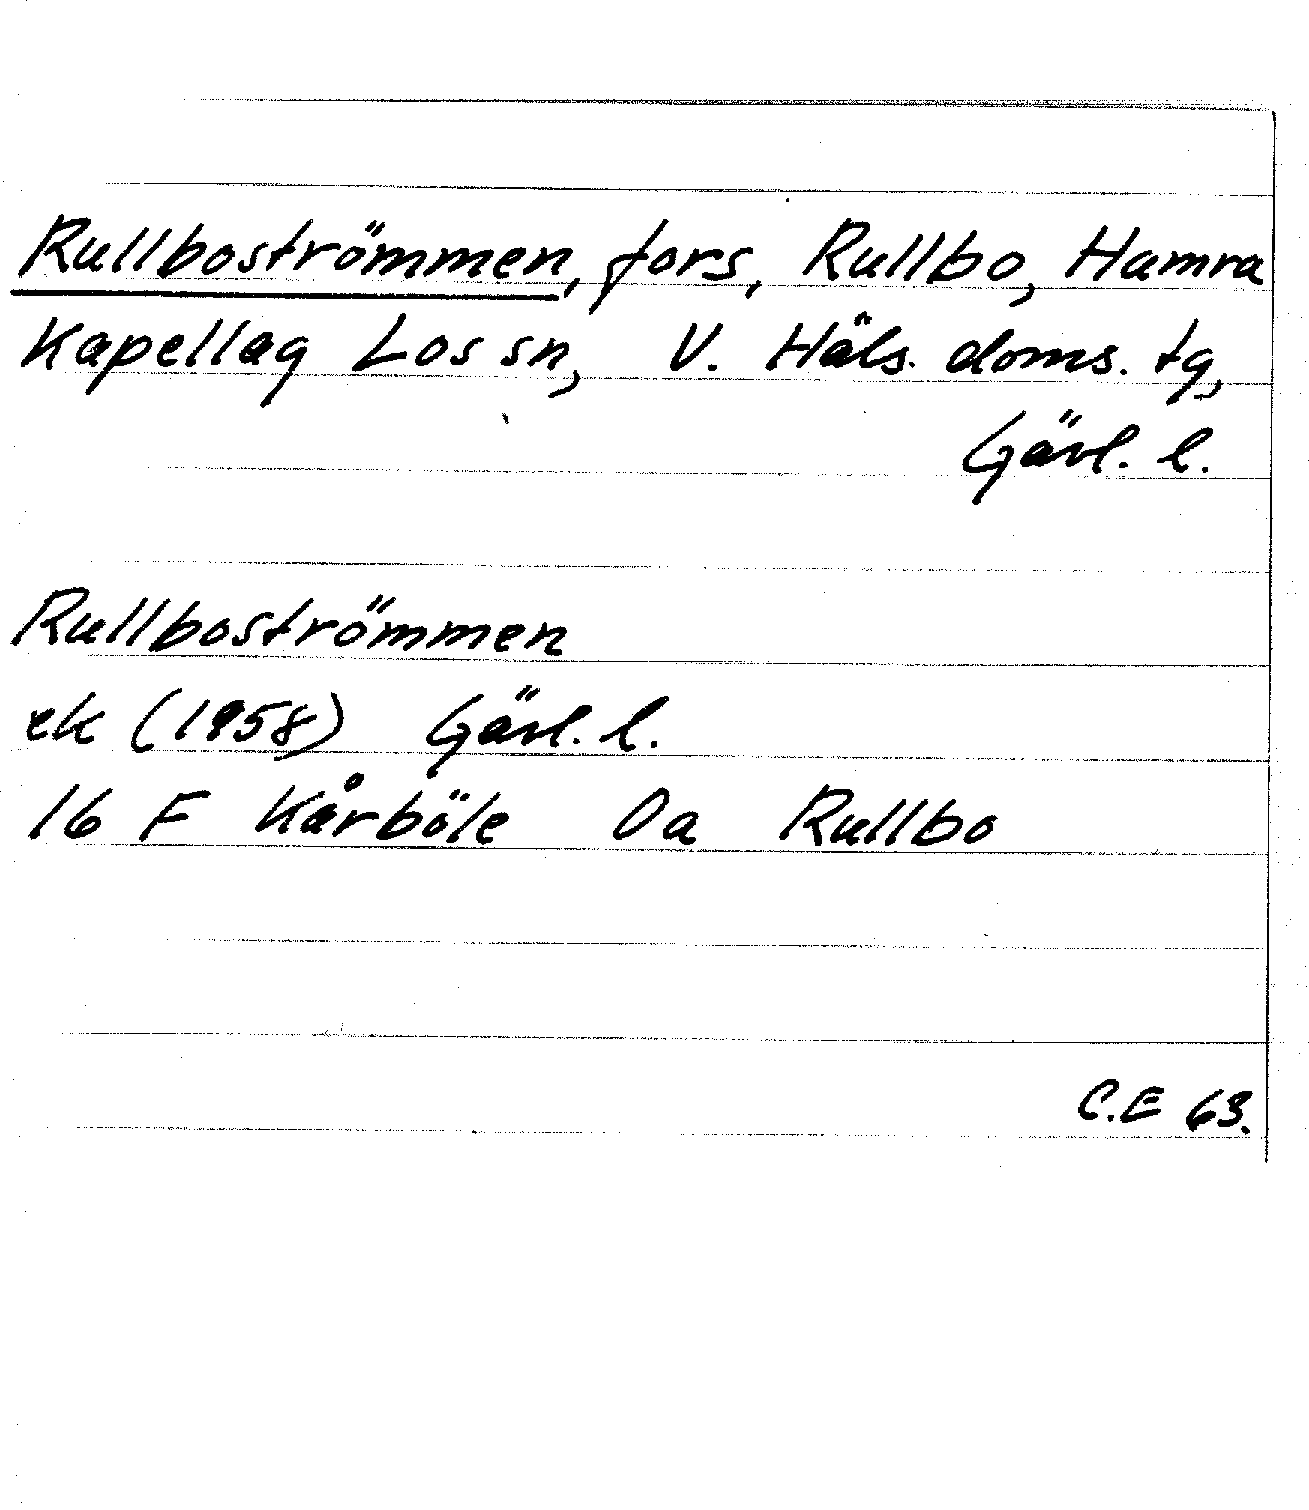 Rullboströmmen, fors, Rullbo, Hamra
Kapellag Los sn, V. Häls. doms. tg,
Gävl. l.
Rullboströmmen
ek (1958) Gävl. l.
16 F Kårböle 0a Rullbo
C.E 63.